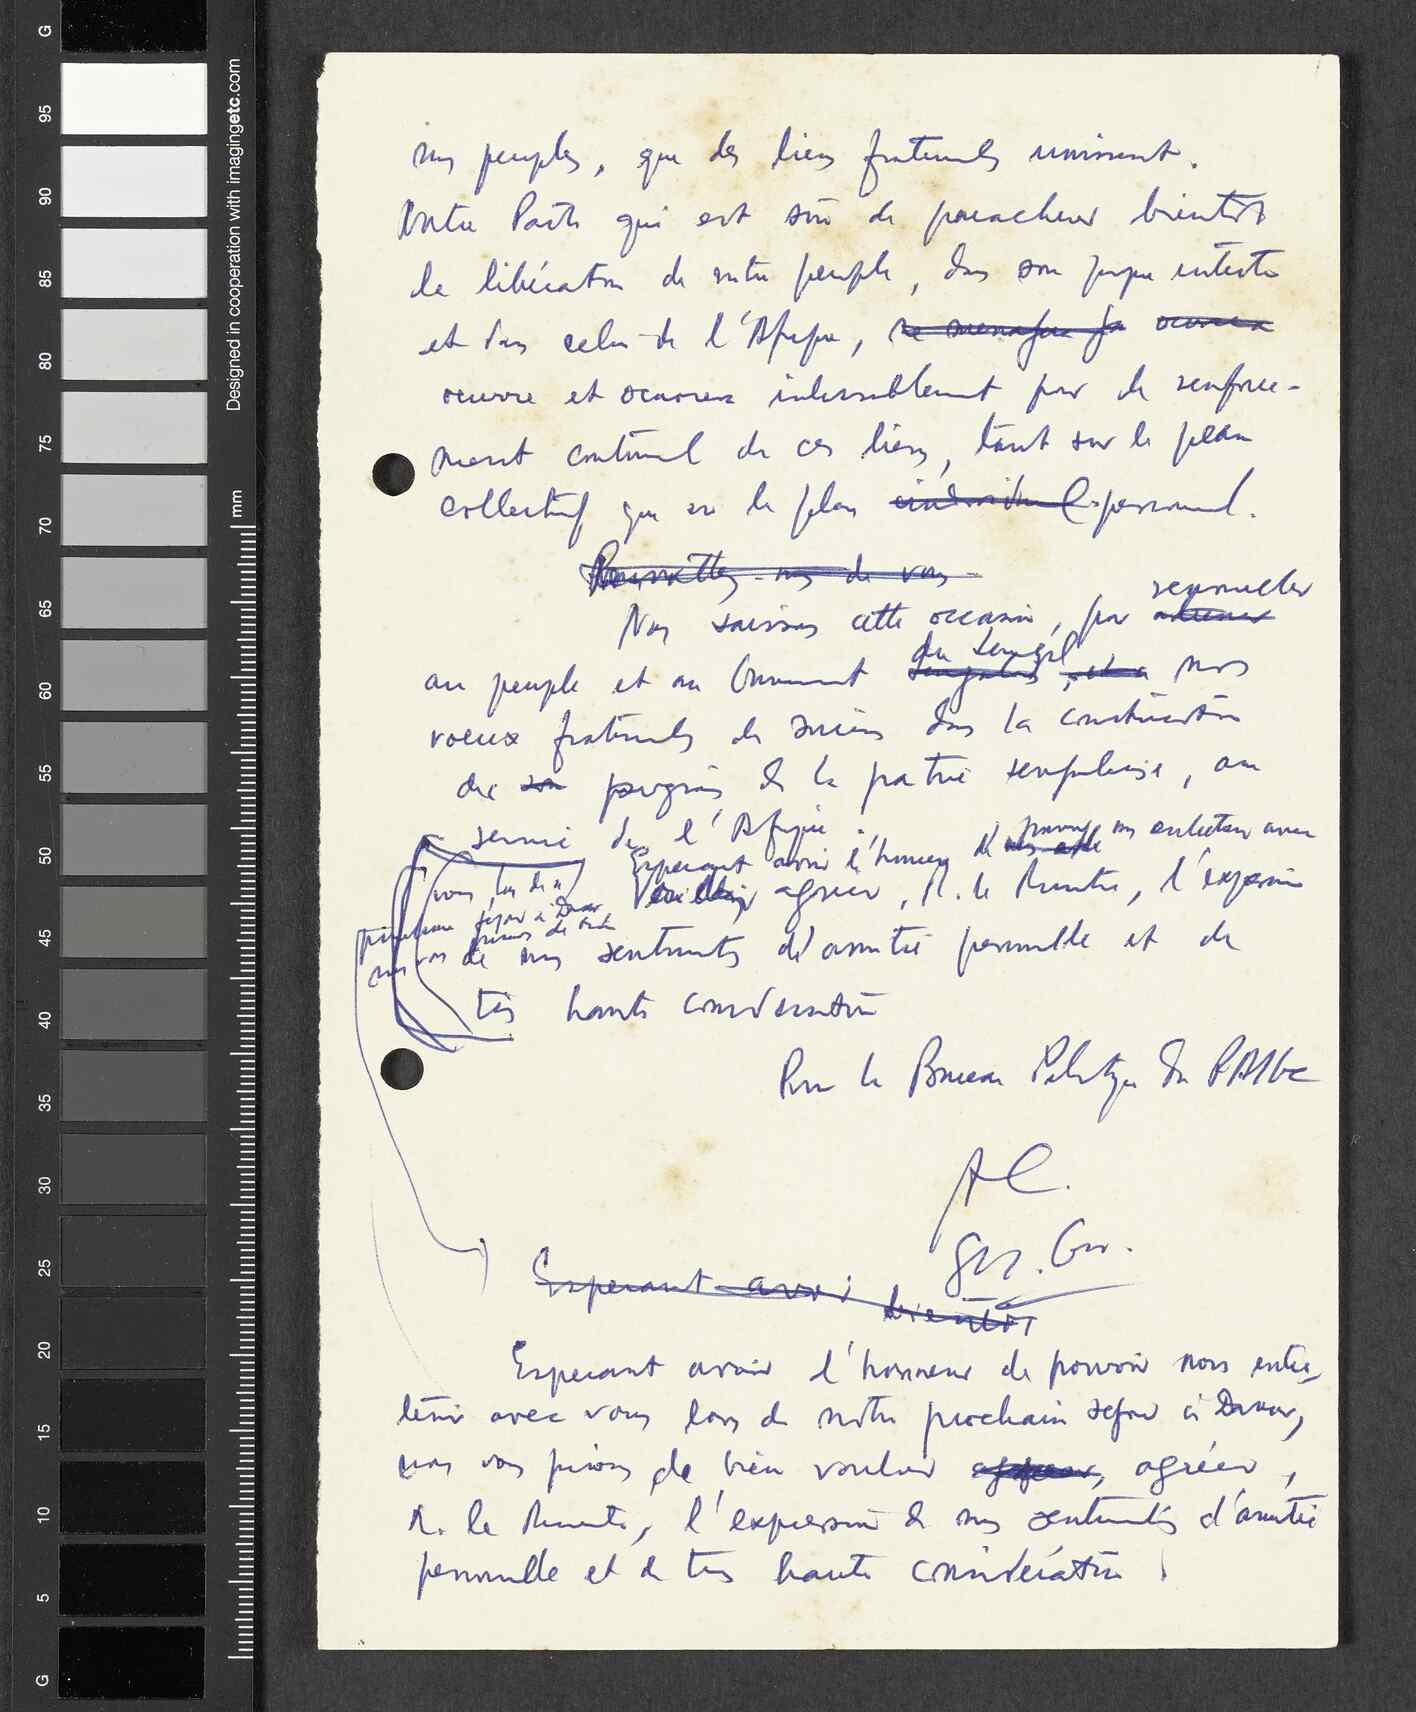 nos peuples, que des liens fraternels unissent.
Notre Parti qui est sûr de parachever bientôt
la libération de notre peuple, dans son propre intérêt
et dans celui de l'Afrique,
oeuvre et oeuvrera inlassablement pour le renforce-
ment continuel de ces liens, tant sur le plan
collectif que sur le plan personnel.
Permettez-nous de vous
renouveler
Nous saisissons cette occasion, pour adresser
du Sénégal
au peuple et au Gouvernement sénégalais, et à nos
voeux fraternels de succès dans la construction
du son progrès de la patrie sénégalaise, au
service de l'Afrique.
Esperant avoir l'honneur de pouvoir nous entretenir avec
vous, lors de n/
Veuillez agréer, M. le Ministre, l'expression
prochain séjour à Dakar
nous vous prions de
de nos sentiments d'amitié personnelle et de
très haute considération
Pour le Bureau Politique du PAIGC
AC.
Sec. Gén.
Esperant avoir bientôt
Esperant avoir l'honneur de pouvoir nous entre-
tenir avec vous lors de notre prochain séjour à Dakar,
nous vous prions de bien vouloir agréer, agréer,
M. le Ministre, l'expression de nos sentiments d'amitié
personnelle et de très haute considération.
Designed in cooperation with imagingetc.com
mm
G
95
90
85
80
75
70
65
60
55
50
45
40
35
30
25
20
15
10
5
G